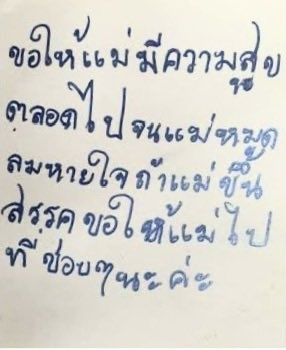 ขอให้แม่มีความสุข
ตลอดไปจนแม่หมด
ลมหายใจถ้าแม่ขึ้น
สรรคขอให้แม่ไป
ที่ชอบๆนะค่ะ